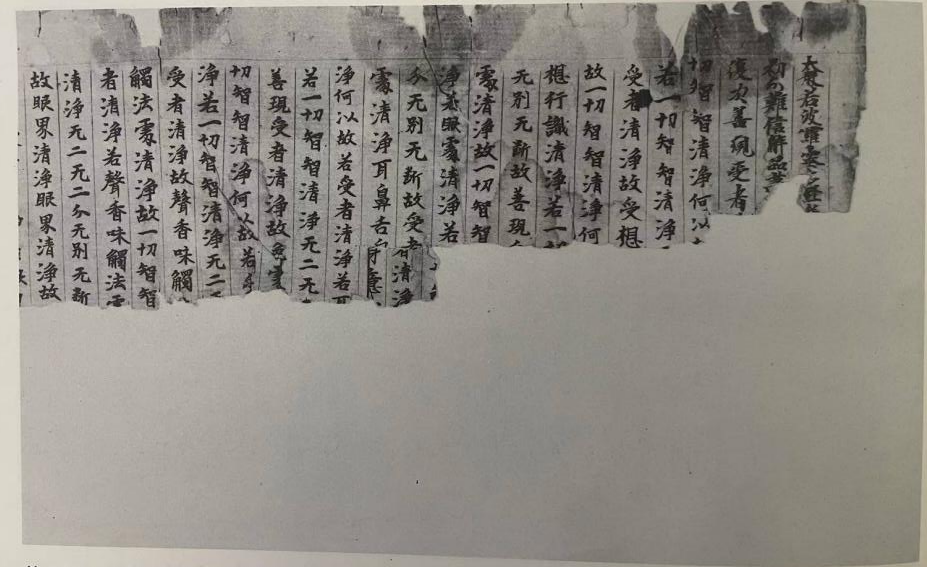 大般若波羅蜜多經卷
初分難信解品第
復次善現受者
切智智清淨何以
若一切智智清淨
受者清淨故受想
故一切智智清淨何
想行識清淨若一切
无別无斷故善現
處清淨故一切智智
淨若眼處清淨若
分无別无斷故受者清淨
處清淨耳鼻舌身意
淨何以故若受者清淨若耳
若一切智智清淨无二无
善現受者清淨故色處
切智智清淨何以故若
淨若一切智智清淨无二
受者清淨故聲香味觸
觸法處清淨故一切智智
者清淨若聲香味觸法處
清淨无二无二分无別无斷
故眼界清淨眼界清淨故